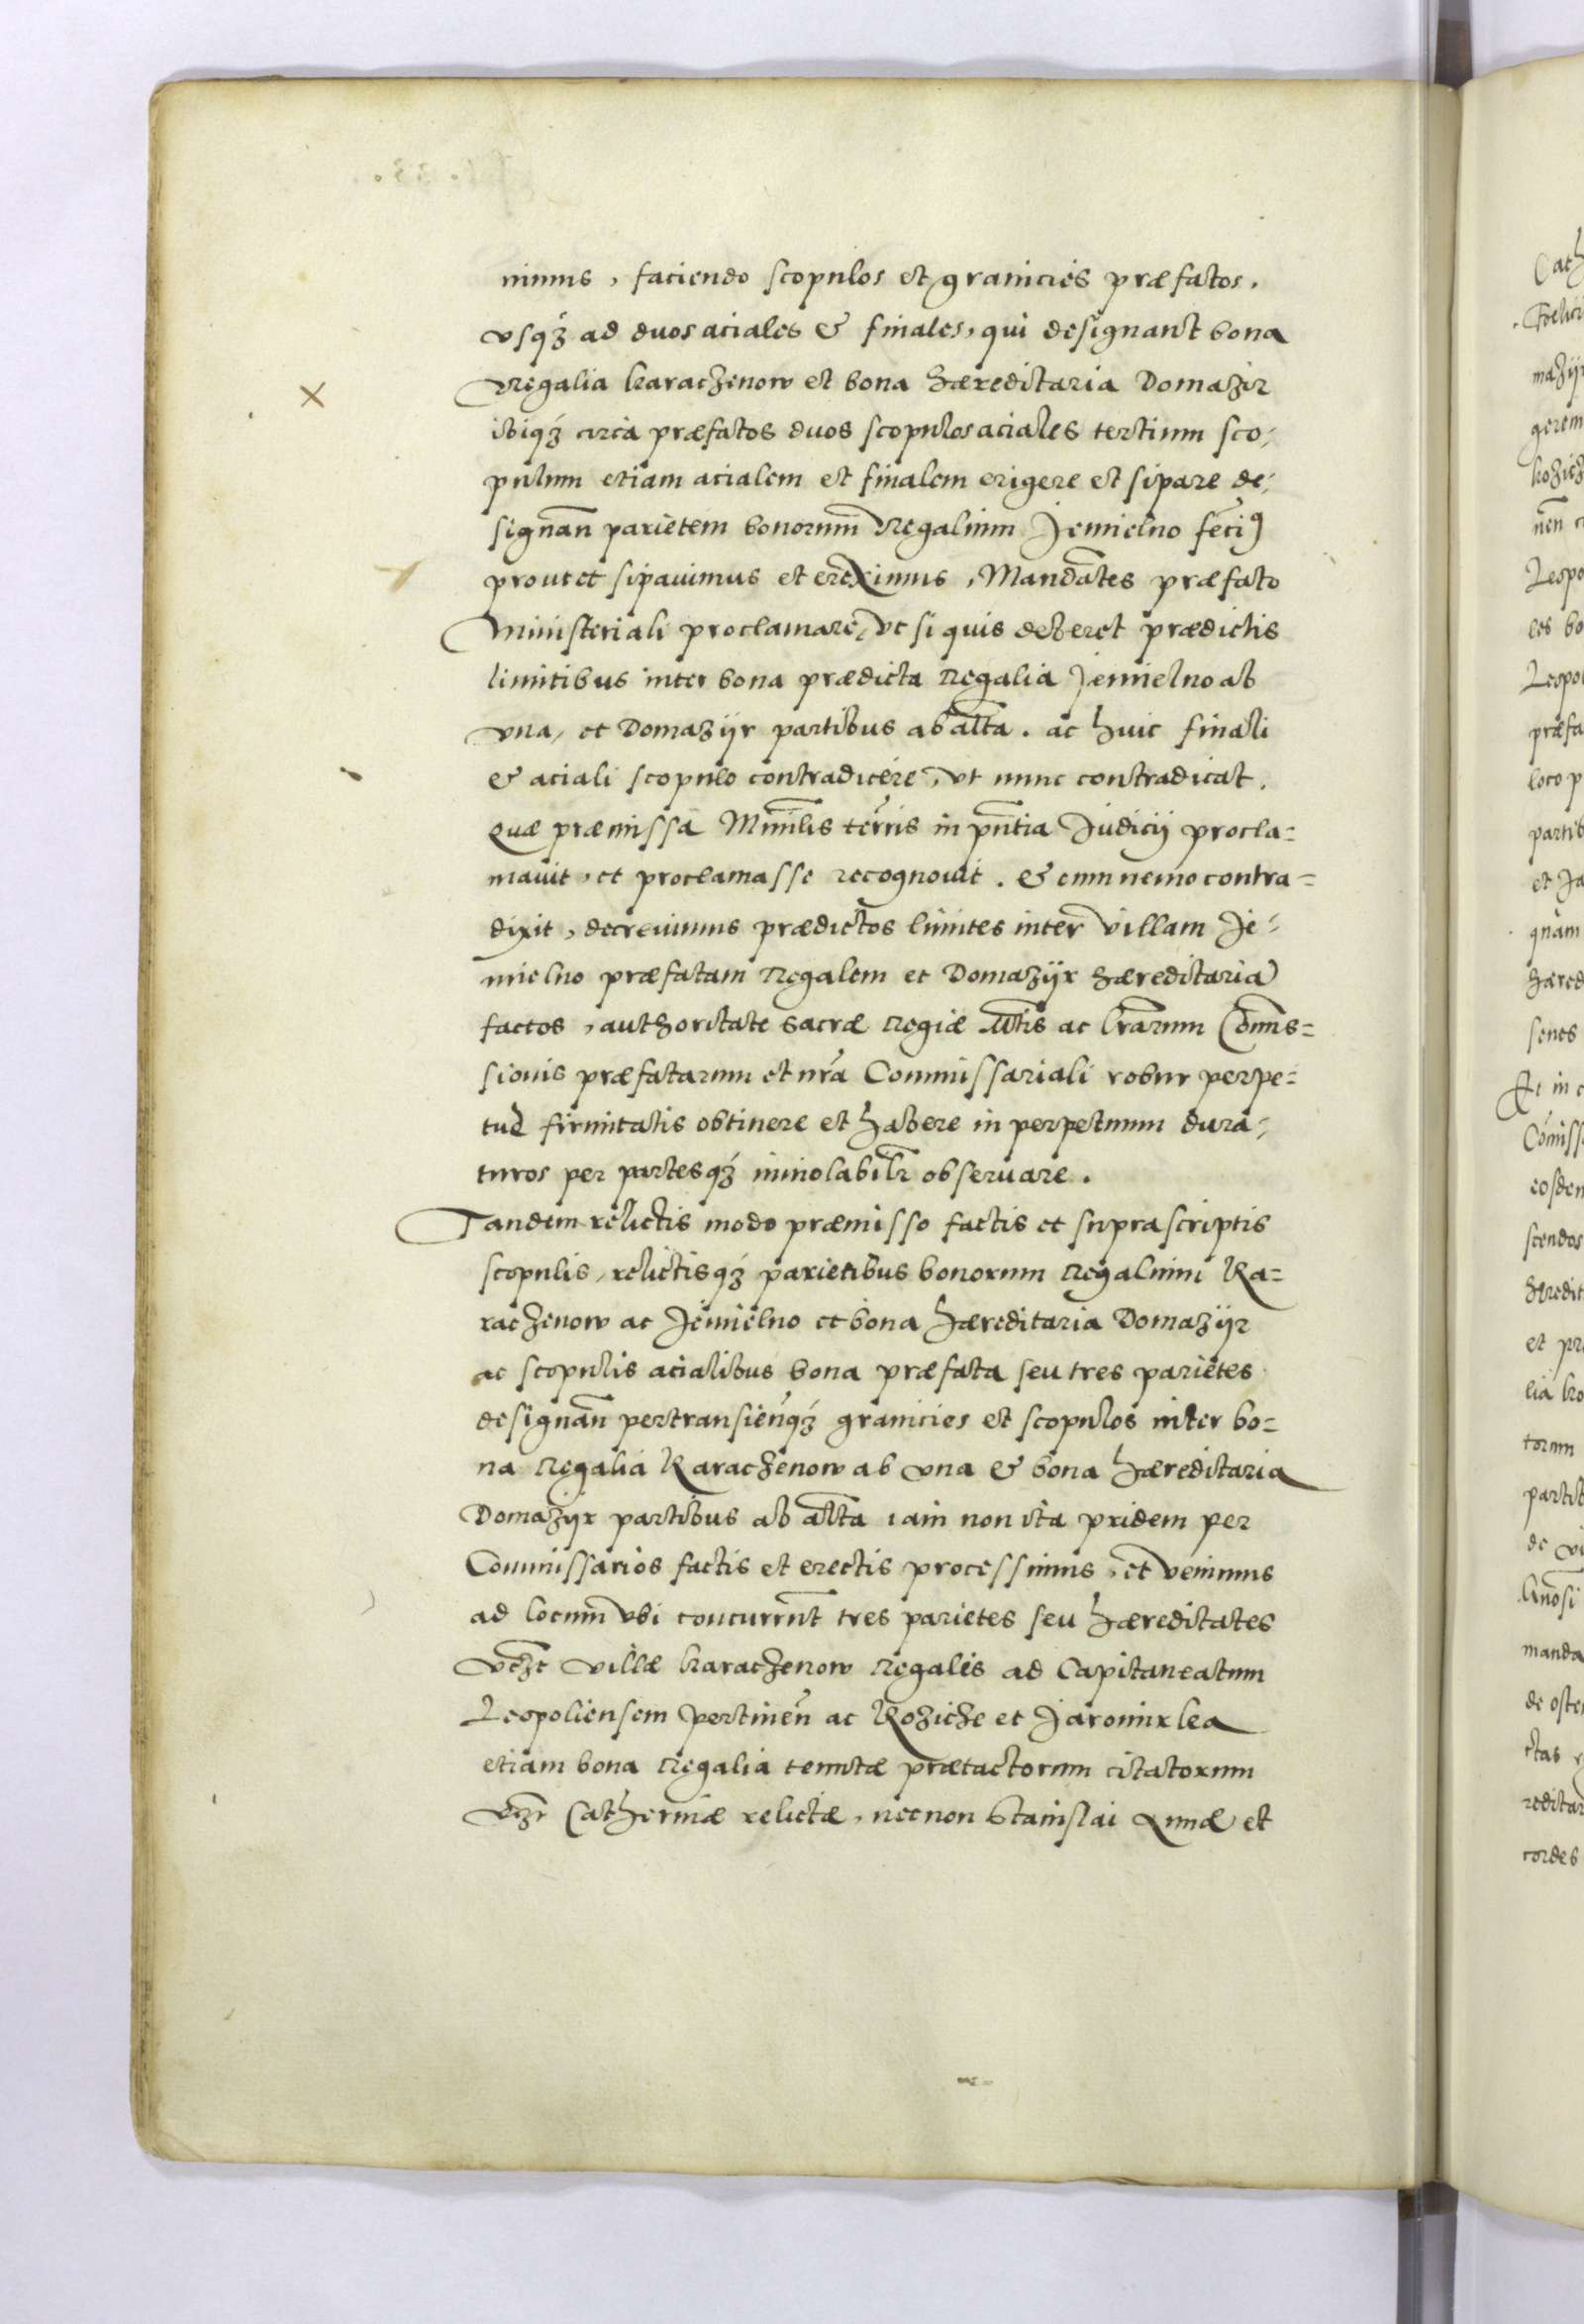 nimus, faciendo scopulos et granicies præfatos.
vsq₃ ad duos aciales & finales, qui designant bona
Regalia karaczenow et bona hæreditaria Domazir
ibiq₃ circa præfatos duos scopulos aciales tertium sco-
pulum etiam acialem et finalem erigere et sipare de-
signan̄ parietem bonorum Regalium Jemielno feciꝰ
prout et sipauimus et ereximus, Mandātes præfato
Ministeriali proclamare, vt si quis deberet prædictis
limitibus inter bona prædicta Regalia Jemielno ab
vna, et Domaziyr partibus ab alt̄a. ac huic finali
& aciali scopulo contradicere, vt nunc contradicat.
Quæ præmissa Mīnlis terr̄is in pn̄tia Judicij procla=
mauit, et proclamasse recognouit. & cum nemo contra=
dixit, decreuimus prædictos limites inter villam Je-
mielno præfatam Regalem et Domaziyr hæreditaria
factos, authoritate sacræ Regiæ Mt̄is ac lr̄arum Com̄is=
sionis præfatarum et nr̄a Commissariali robur perpe=
tuæ firmitatis obtinere et habere in perpetuum dura-
turos per partesq₃ inuiolabilr̄ obseruare.
Tandem relictis modo præmisso factis et suprascriptis
scopulis, relictisq₃ parietibus bonorum Regalium Ka=
raczenow ac Jemielno et bona hæreditaria Domaziyr
ac scopulis acialibus bona præfata seu tres parietes
designan̄ pertransien̄q₃ granicies et scopulos inter bo=
na Regalia Karaczenow ab vna & bona hæreditaria
Domaziyr partibus ab alt̄a iam non ita pridem per
Commissarios factis et erectis processimus, et venimus
ad locum vbi concurrunt tres parietes seu hæreditates
vcz̄ villæ karaczenow Regalis ad Capitaneatum
Leopoliensem pertinen̄ ac Koziche et Jaromirlea
etiam bona Regalia tenutæ prætactorum citatorum
vcz̄ Catherinæ relictæ, necnon Stanislai Annæ et